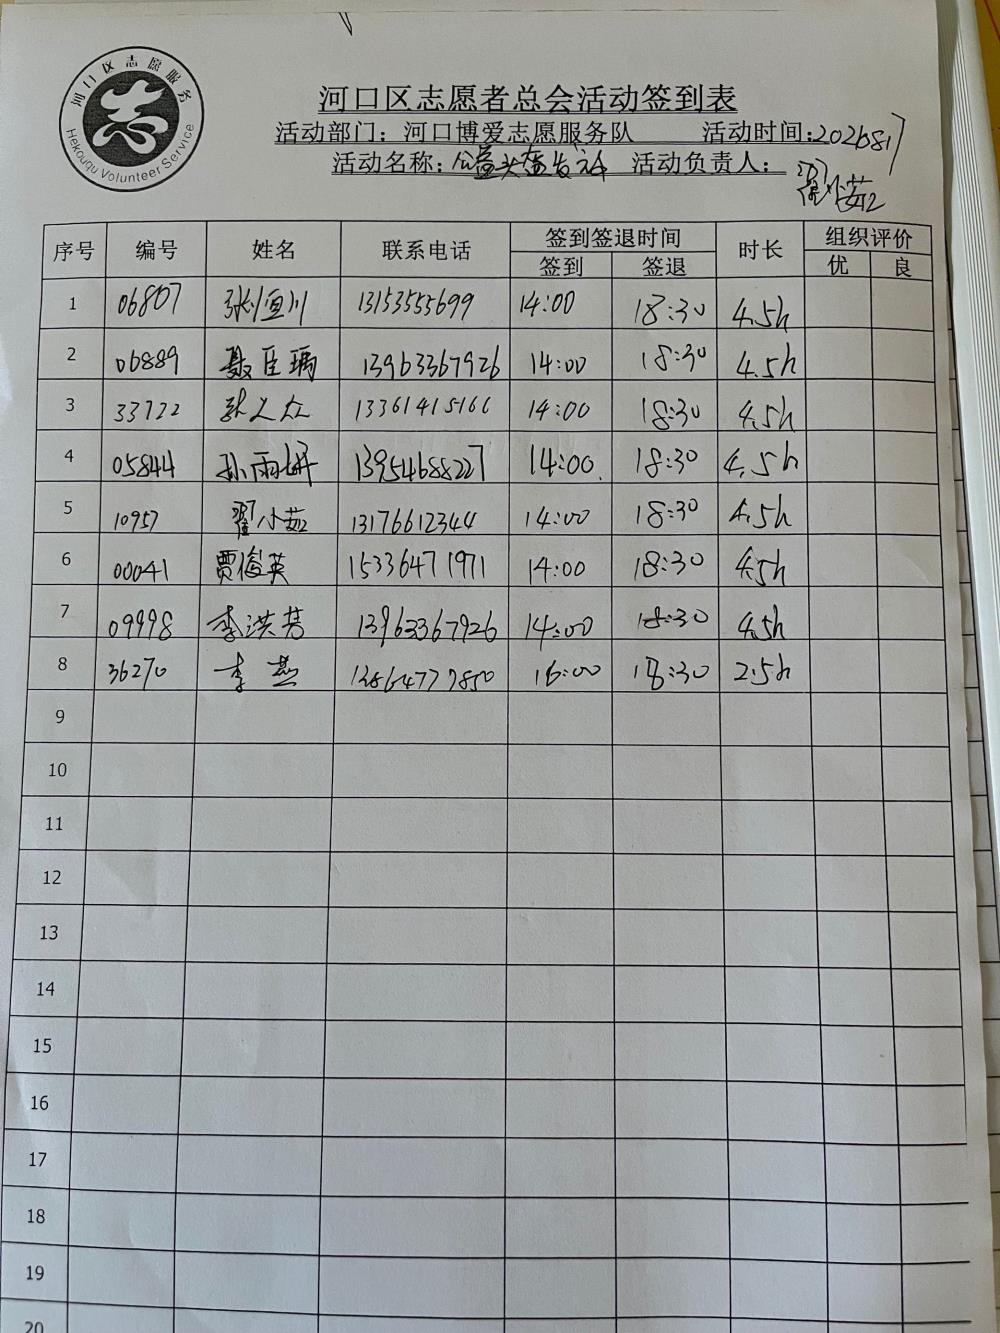 河口区志愿服务
Hekouqu Volunteer Service
河口区志愿者总会活动签到表
活动部门：河口博爱志愿服务队 活动时间：2026817
活动名称：公益 活动负责人：翟小茹
序号 编号 姓名 联系电话 签到签退时间 时长 组织评价
签到 签退 优 良
1 06807 张恒川 13153555699 14:00 18:30 4.5h
2 06889 聂臣瑀 13963367926 14:00 18:30 4.5h
3 33722 张人众 13361415166 14:00 18:30 4.5h
4 05844 孙雨妍 13954688227 14:00 18:30 4.5h
5 10957 翟小茹 13176612344 14:00 18:30 4.5h
6 00041 贾俊英 15336471971 14:00 18:30 4.5h
7 09998 李洪芳 13963367926 14:00 18:30 4.5h
8 36270 李燕 13864777850 16:00 18:30 2.5h
9
10
11
12
13
14
15
16
17
18
19
20